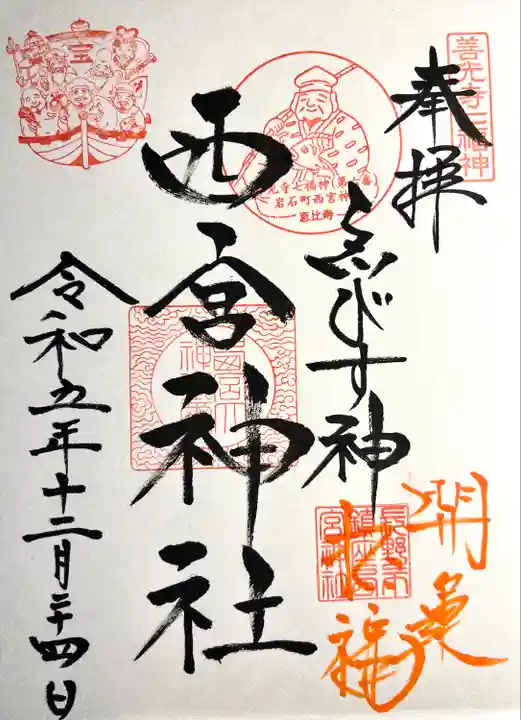 善光寺七福神
奉拝
光寺七福神(第七番)
岩石町西宮神
恵比寿
ゑびす神
開運
招福
長野市
鎮座西
宮神社
西宮神社
宝
令和五年十二月二十四日